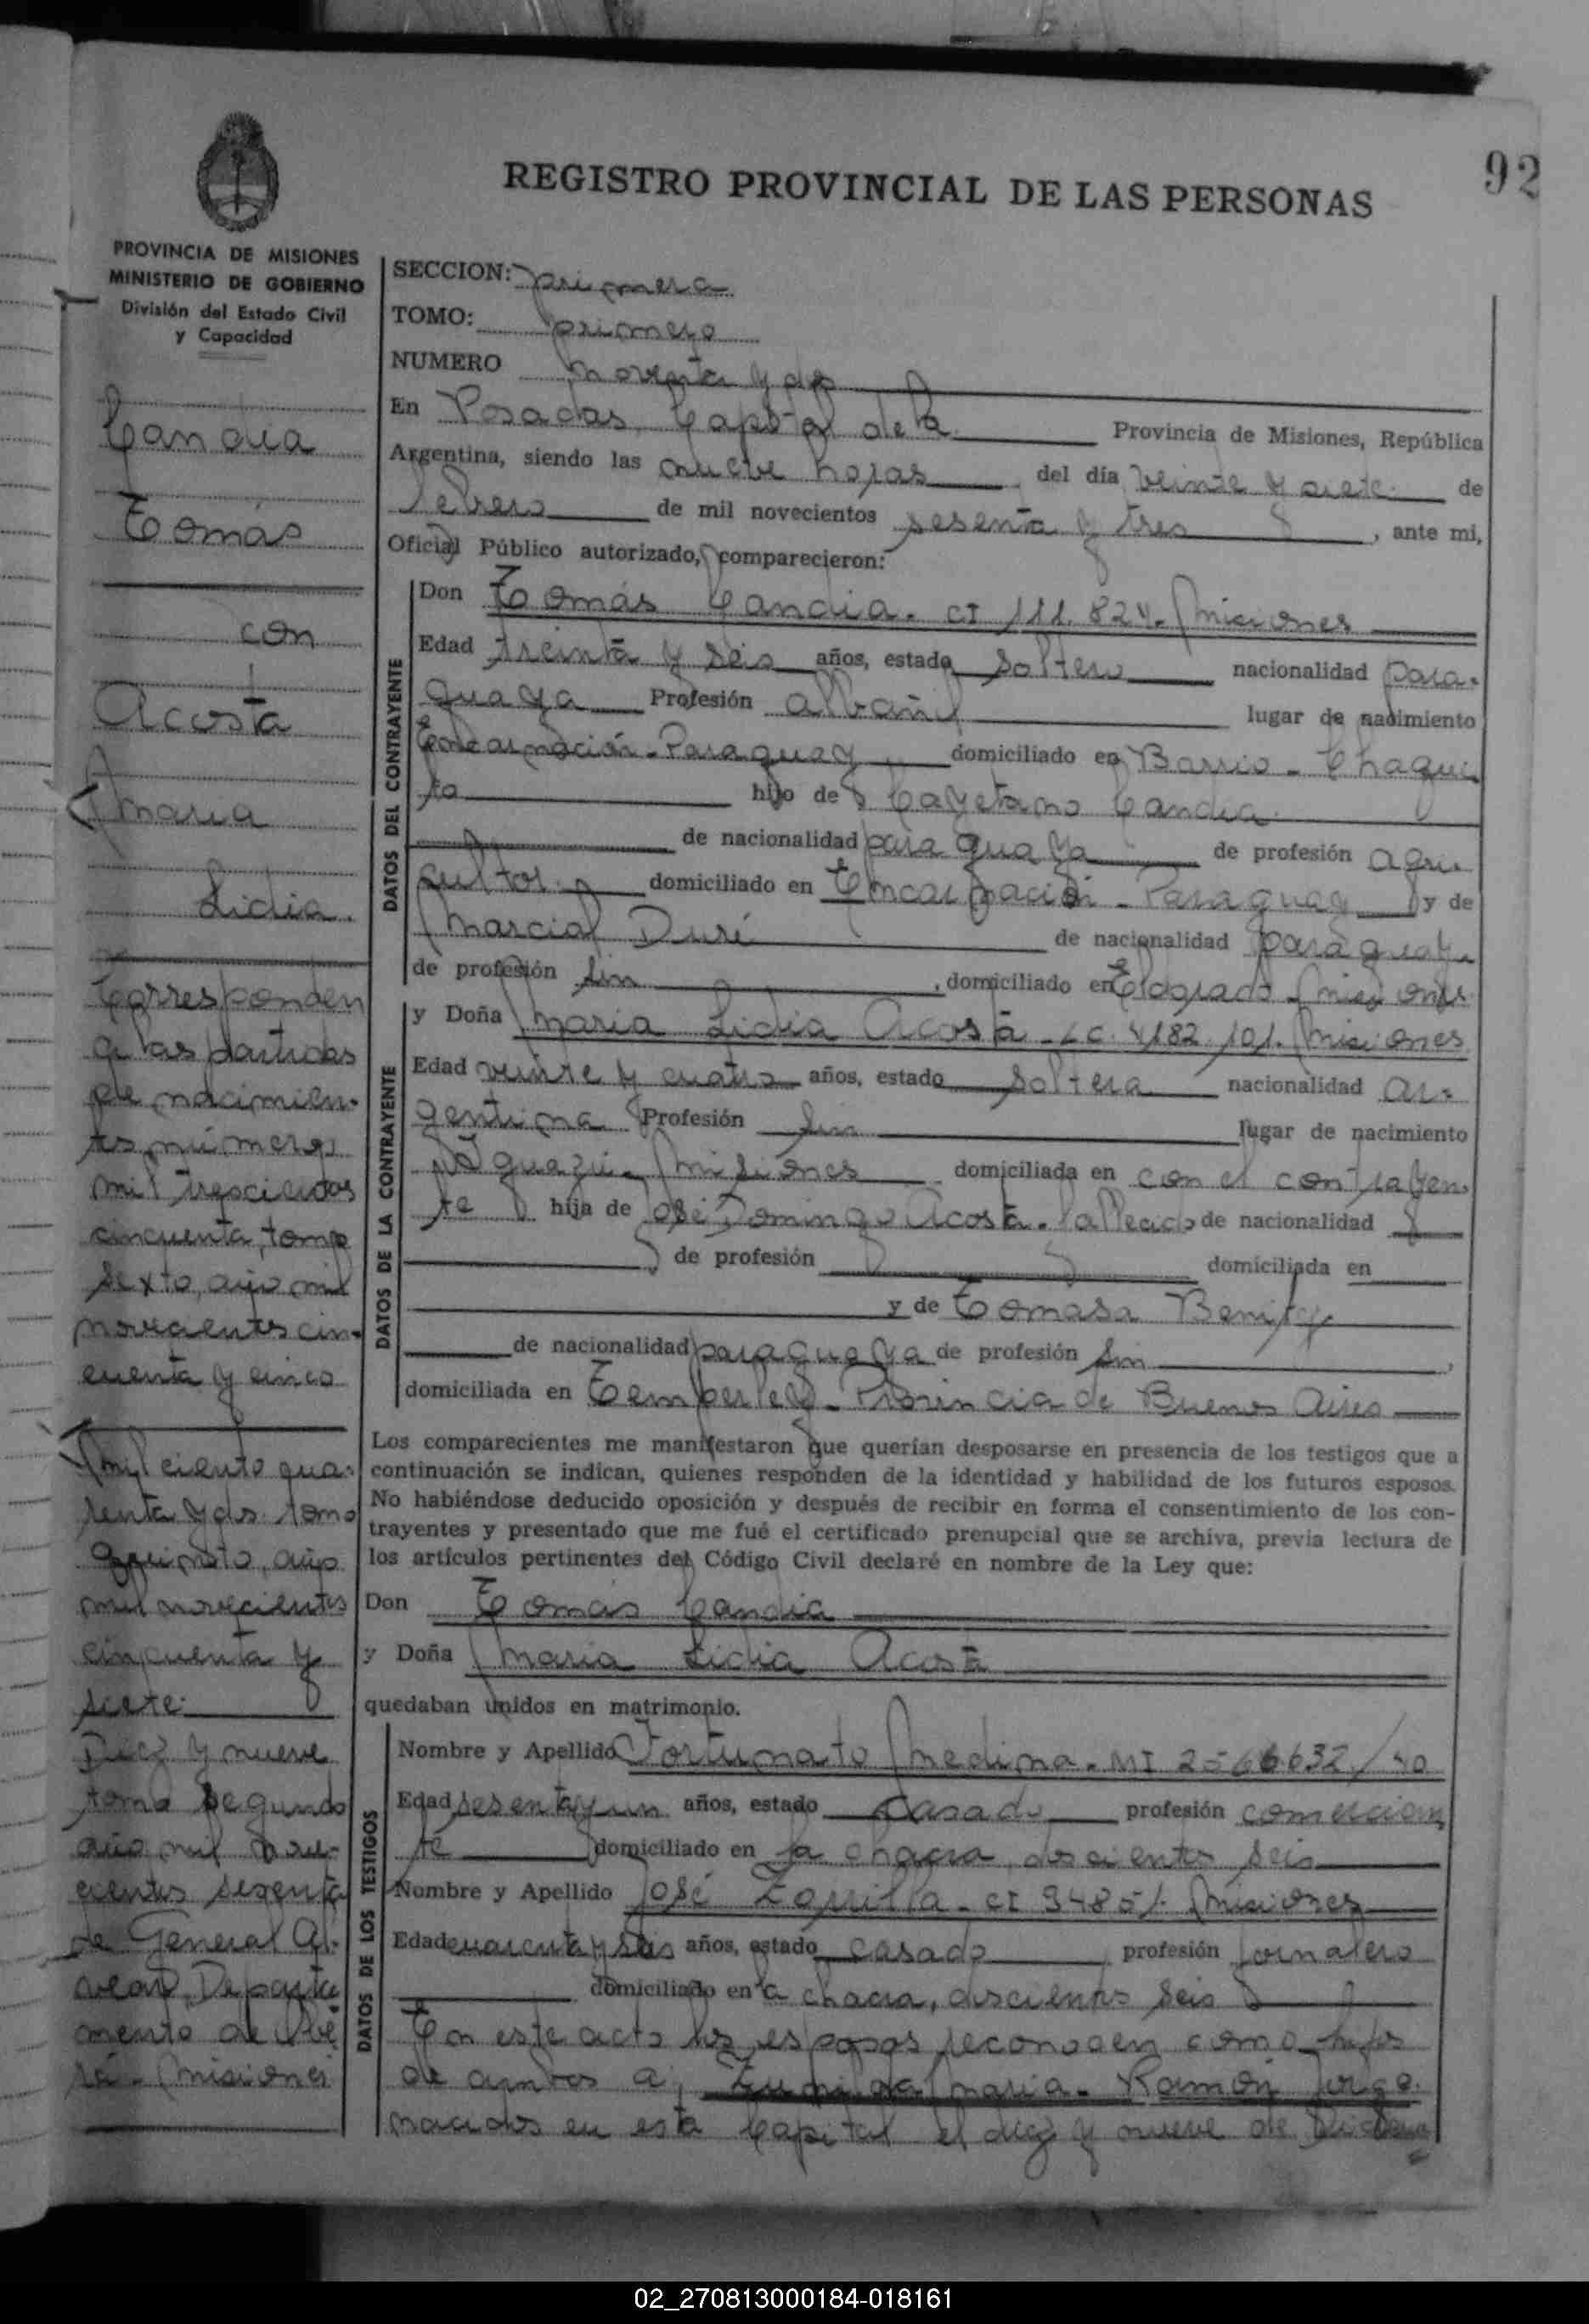 92
REGISTRO PROVINCIAL DE LAS PERSONAS
PROVINCIA DE MISIONES
MINISTERIO DE GOBIERNO
División del Estado Civil
y Capacidad
Candia
Tomás
con
Acosta
Maria
Lidia.
Corresponden
a las partidas
de nacimien-
tos números
mil trescientos
cincuenta, tomo
sexto, año mil
novecientos cin-
cuenta y cinco
Mil ciento qua-
renta y dos tomo
quinto, año
mil novecientos
cincuenta y
siete
Diez y nueve
tomo segundo
año mil nove-
cientos sesenta
de General Al-
vear, Departa-
mento de Obe-
rá - Misiones
SECCION: primera
TOMO: primero
NUMERO noventa y dos
En Posadas, Capital de la Provincia de Misiones, República
Argentina, siendo las nueve horas del día veinte y siete de
febrero de mil novecientos sesenta y tres, ante mi,
Oficial Público autorizado, comparecieron:
DATOS DEL CONTRAYENTE
Don Tomás Candia. CI 111.824. Misiones
Edad treinta y seis años, estado soltero nacionalidad para-
guaya Profesión albañil lugar de nacimiento
Encarnación - Paraguay domiciliado en Barrio - Chaqui
to hijo de Cayetano Candia
de nacionalidad paraguaya de profesión agri
cultor. domiciliado en Encarnación - Paraguay y de
Marcial Duré de nacionalidad paraguay.
de profesión sin, domiciliado en Eldorado - Misiones
DATOS DE LA CONTRAYENTE
y Doña Maria Lidia Acosta - LC. 4182.101. Misiones
Edad veinte y cuatro años, estado soltera nacionalidad ar-
gentina Profesión sin lugar de nacimiento
Yguazú - Misiones domiciliada en con el contrayen
te hija de José Domingo Acosta - fallecido de nacionalidad
de profesión domiciliada en
y de Tomasa Benitez
de nacionalidad paraguaya de profesión sin,
domiciliada en Temperley - Provincia de Buenos Aires
Los comparecientes me manifestaron que querían desposarse en presencia de los testigos que a
continuación se indican, quienes responden de la identidad y habilidad de los futuros esposos.
No habiéndose deducido oposición y después de recibir en forma el consentimiento de los con-
trayentes y presentado que me fué el certificado prenupcial que se archiva, previa lectura de
los artículos pertinentes del Código Civil declaré en nombre de la Ley que:
Don Tomás Candia
y Doña Maria Lidia Acosta
quedaban unidos en matrimonio.
DATOS DE LOS TESTIGOS
Nombre y Apellido Fortunato Medina. MI 2566632/40
Edad sesenta y un años, estado casado profesión comercian
te domiciliado en la chacra doscientos seis
Nombre y Apellido José Zorrilla - CI 94851. Misiones
Edad cuarenta y seis años, estado casado profesión jornalero
domiciliado en la chacra, doscientos seis
En este acto los esposos reconocen como hijos
de ambos a, Maria - Ramón Jorge.
nacidos en esta Capital el diez y nueve de
02_270813000184-018161